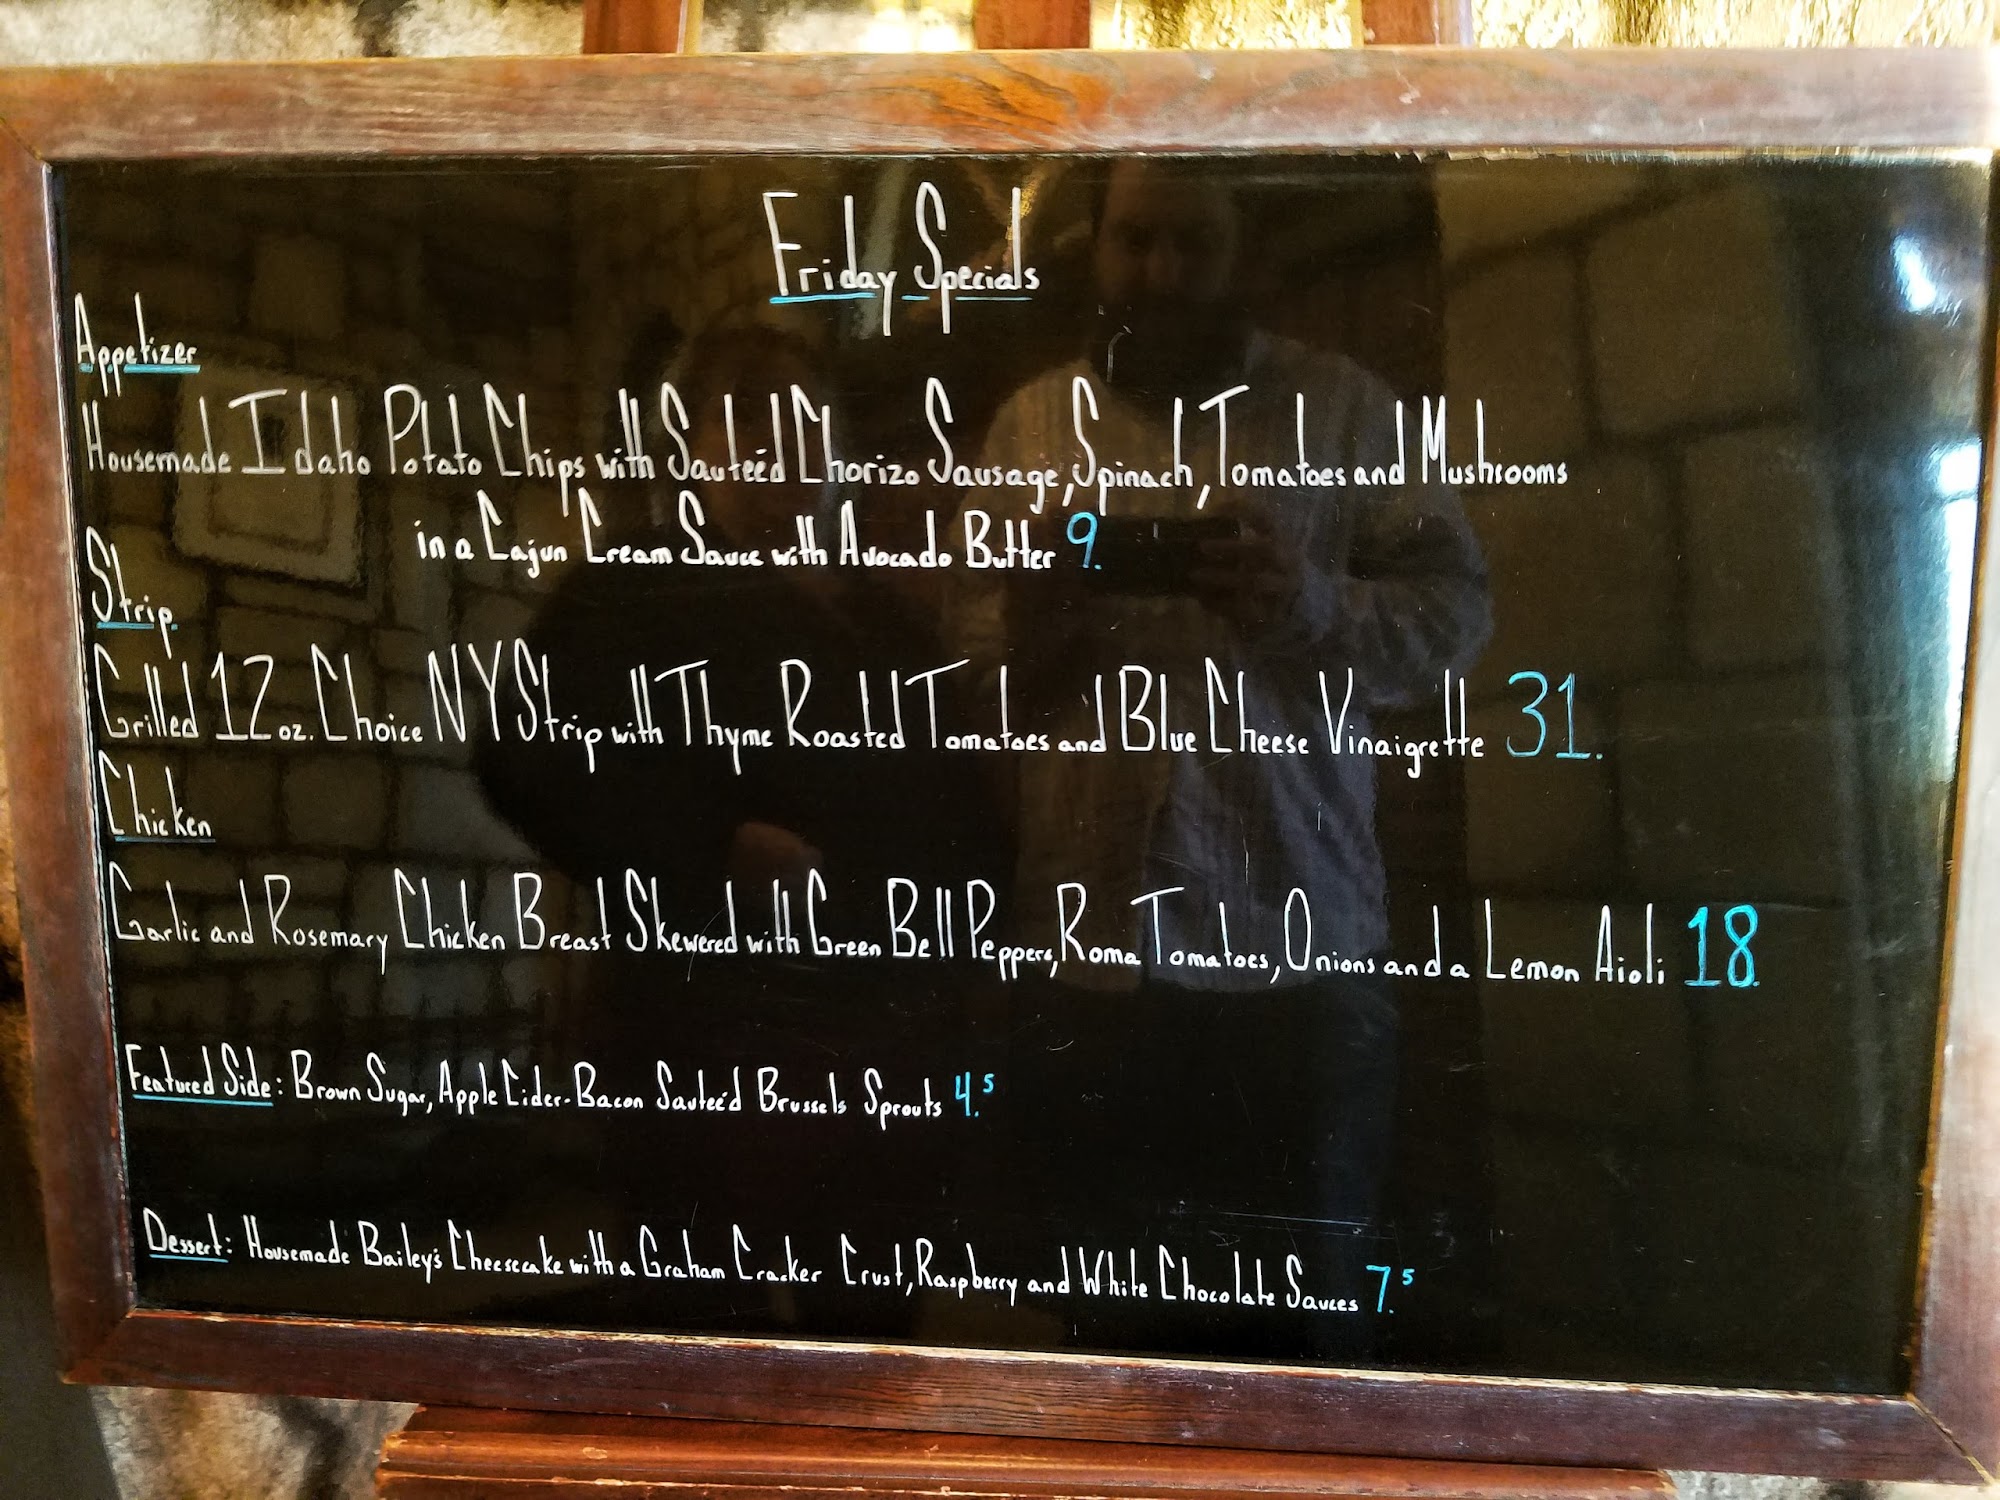 Friday Specials
Appetizer
Housemade Idaho Potato Chips with Sauteéd Chorizo Sausage, Spinach, Tomatoes and Mushrooms
in a Cajun Cream Sauce with Avocado Butter 9.
Strip
Grilled 12 oz. Choice NY Strip with Thyme Roasted Tomatoes and Blue Cheese Vinaigrette 31.
Chicken
Garlic and Rosemary Chicken Breast Skewered with Green Bell Peppers, Roma Tomatoes, Onions and a Lemon Aioli 18.
Featured Side: Brown Sugar, Apple Cider-Bacon Sauteé'd Brussels Sprouts 4.5
Dessert: Housemade Bailey's Cheesecake with a Graham Cracker Crust, Raspberry and White Chocolate Sauces 7.5